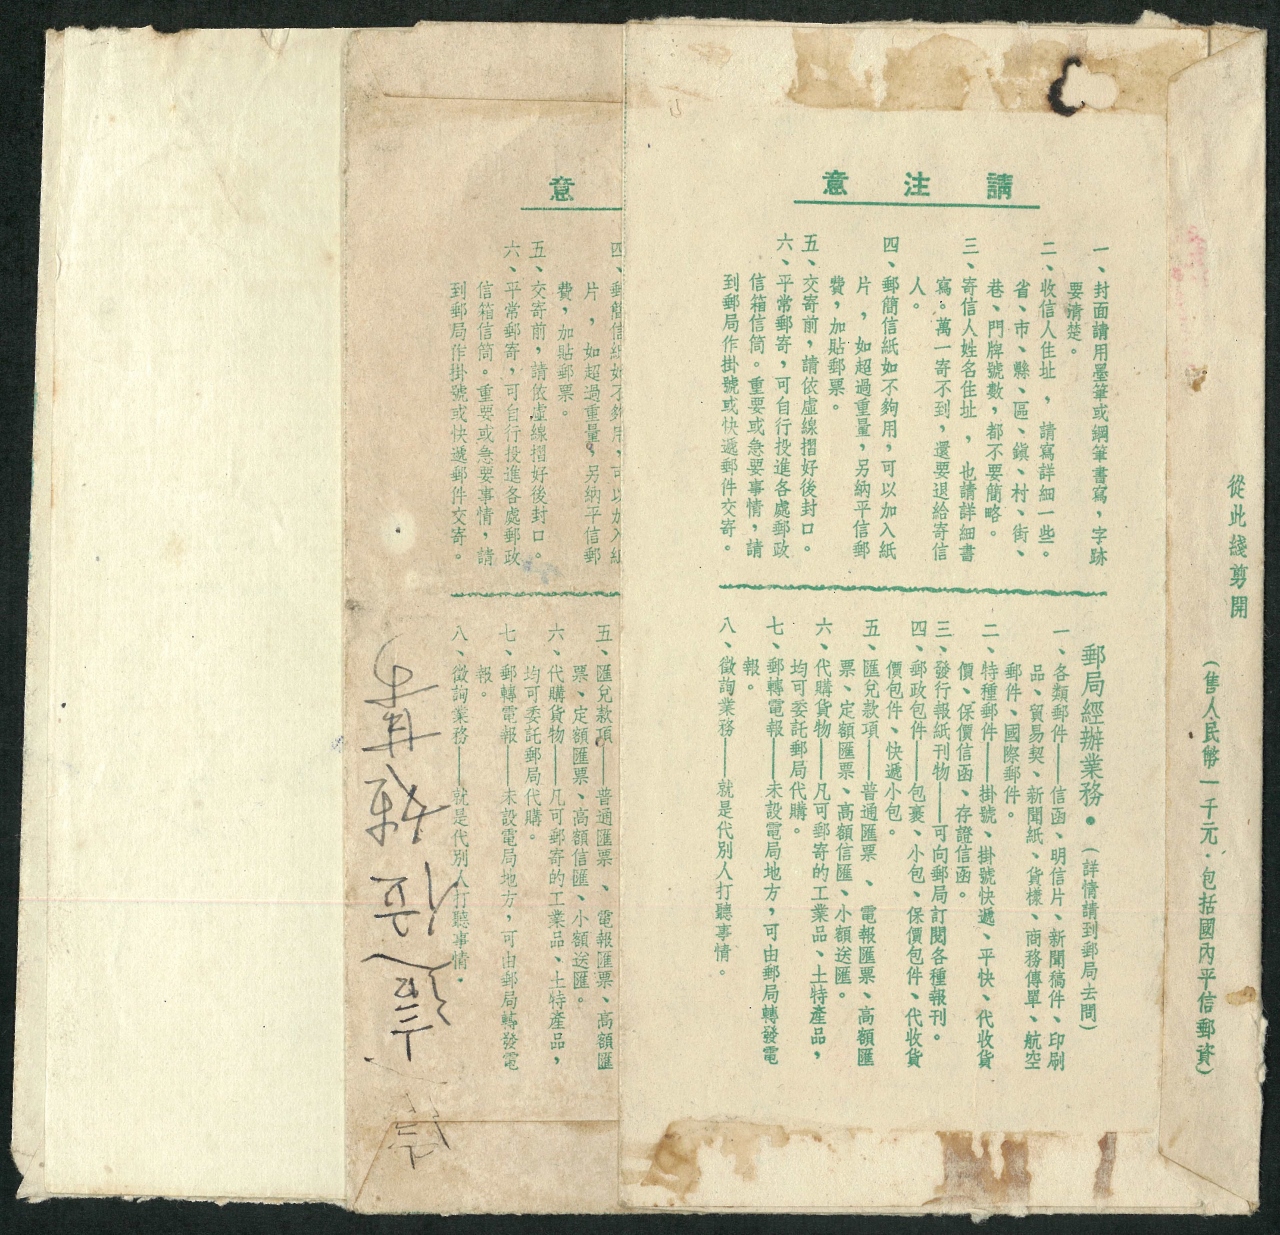 從此綫剪開
(售人民幣一千元．包括國內平信郵資)
請注意
一、封面請用墨筆或鋼筆書寫，字跡
要清楚。
二、收信人住址，請寫詳細一些。
省、市、縣、區、鎮、村、街、
巷、門牌號數，都不要簡略。
三、寄信人姓名住址，也請詳細書
寫。萬一寄不到，還要退給寄信
人。
四、郵簡信紙如不夠用，可以加入紙
片，如超過重量，另納平信郵
費，加貼郵票。
五、交寄前，請依虛線摺好後封口。
六、平常郵寄，可自行投進各處郵政
信箱信筒。重要或急要事情，請
到郵局作掛號或快遞郵件交寄。
郵局經辦業務●(詳情請到郵局去問)
一、各類郵件——信函、明信片、新聞稿件、印刷
品、貿易契、新聞紙、貨樣、商務傳單、航空
郵件、國際郵件。
二、特種郵件——掛號、掛號快遞、平快、代收貨
價、保價信函、存證信函。
三、發行報紙刊物——可向郵局訂閱各種報刊。
四、郵政包件——包裹、小包、保價包件、代收貨
價包件、快遞小包。
五、匯兌款項——普通匯票、電報匯票、高額匯
票、定額匯票、高額信匯、小額送匯。
六、代購貨物——凡可郵寄的工業品、土特產品，
均可委託郵局代購。
七、郵轉電報——未設電局地方，可由郵局轉發電
報。
八、徵詢業務——就是代別人打聽事情。
意
四、郵簡信紙如不夠用，可以加入紙
片，如超過重量，另納平信郵
費，加貼郵票。
五、交寄前，請依虛線摺好後封口。
六、平常郵寄，可自行投進各處郵政
信箱信筒。重要或急要事情，請
到郵局作掛號或快遞郵件交寄。
五、匯兌款項——普通匯票、電報匯票、高額匯
票、定額匯票、高額信匯、小額送匯。
六、代購貨物——凡可郵寄的工業品、土特產品，
均可委託郵局代購。
七、郵轉電報——未設電局地方，可由郵局轉發電
報。
八、徵詢業務——就是代別人打聽事情．